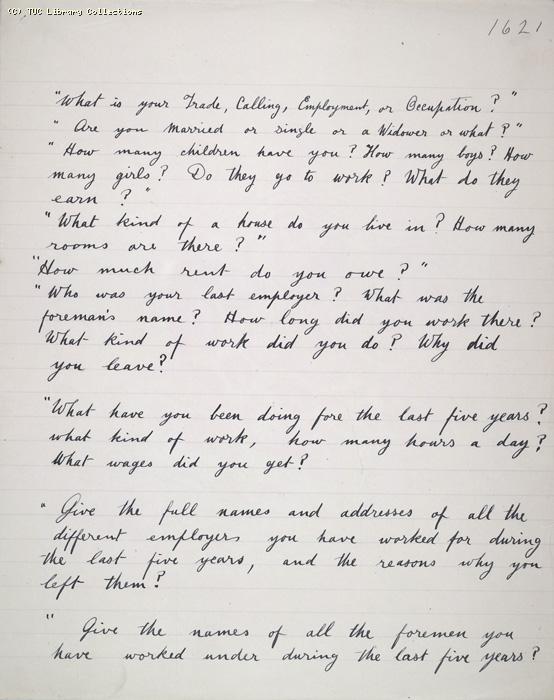 (C) TUC Library Collections
1621
"What is your Trade, Calling, Employment, or Occupation?"
" Are you Married or single or a Widower or what?"
" How many children have you? How many boys? How
many girls? Do they go to work? What do they
earn?"
"What kind of a house do you live in? How many
rooms are there?"
"How much rent do you owe?"
"Who was your last employer? What was the
foreman's name? How long did you work there?
What kind of work did you do? Why did
you leave?
"What have you been doing fore the last five years?
what kind of work, how many hours a day?
What wages did you get?
" Give the full names and addresses of all the
different employers you have worked for during
the last five years, and the reasons why you
left them?
" Give the names of all the foremen you
have worked under during the last five years?